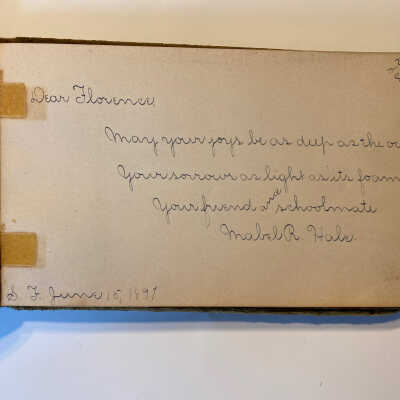 Dear Florence,
May your joys be as deep as the oc
Your sorrow as light as its foam
Your friend and schoolmate
Mabel R. Hale.
S. F. June 15, 1891